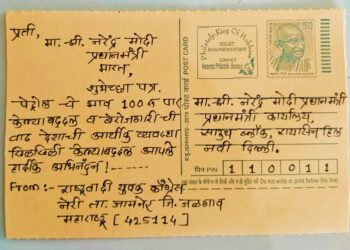 प्रती,
मा. श्री. नरेंद्र मोदी
प्रधानमंत्री
भारत,
शुभेच्छा पत्र.
पेट्रोल चे भाव 100 री पार
केल्याबद्दल व बेरोजगारी ची
वाढ देशाची आर्थीक व्यवस्था
खिळखिळी केल्याबद्दल आपले
हार्दीक अभिनंदन !
From :- राष्ट्रवादी युवक काँग्रेस
नेरी ता. जामनेर जि. जळगाव
महाराष्ट्र [425114]
POST CARD
Philately King Of Hobbies
COLLECT
INDIA POSTAGE STAMPS
CONTACT
Nearest Philatelic Bureau
50
मा. श्री. नरेंद्र मोदी प्रधानमंत्री
प्रधानमंत्री कार्यालय,
साउथ ब्लॉक, रायसिन हिल
नवी दिल्ली.
पिन PIN 110011